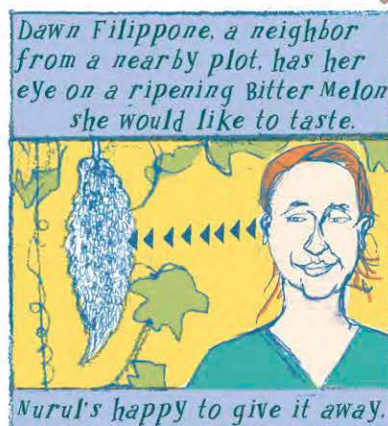 Dawn Filippone, a neighbor
from a nearby plot, has her
eye on a ripening Bitter Melon
she would like to taste.
Nurul's happy to give it away.